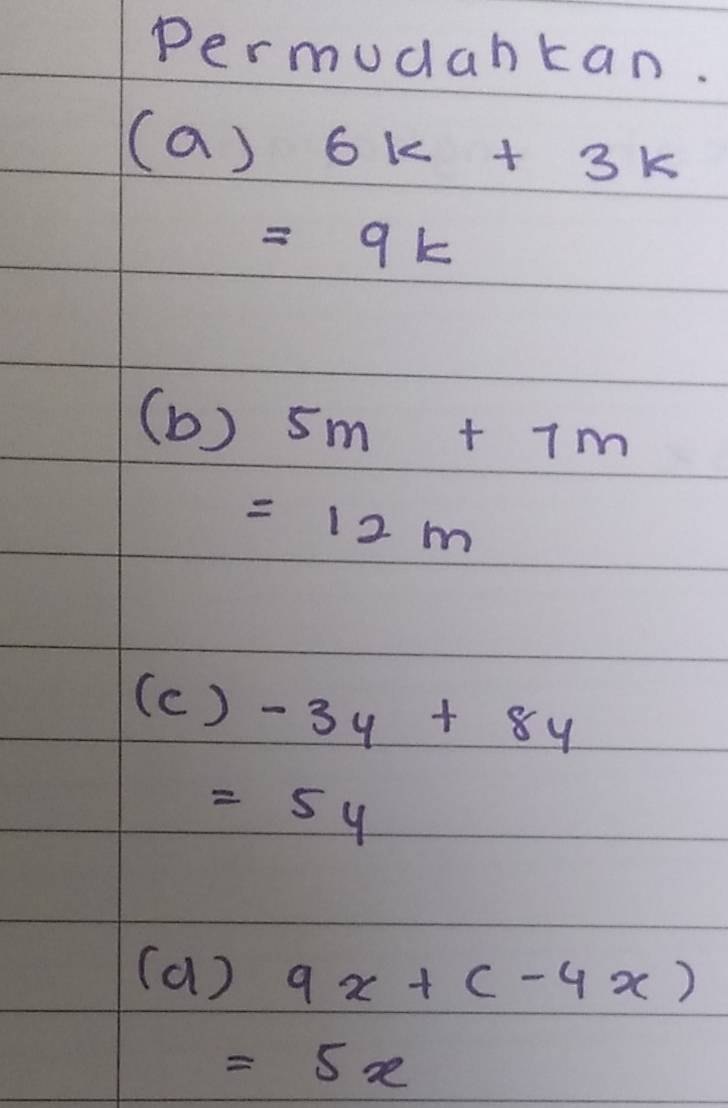 Permudahkan.
(a) 6k + 3k
= 9k
(b) 5m + 7m
= 12m
(c) -3y + 8y
= 5y
(d) 9x + (-4x)
= 5x